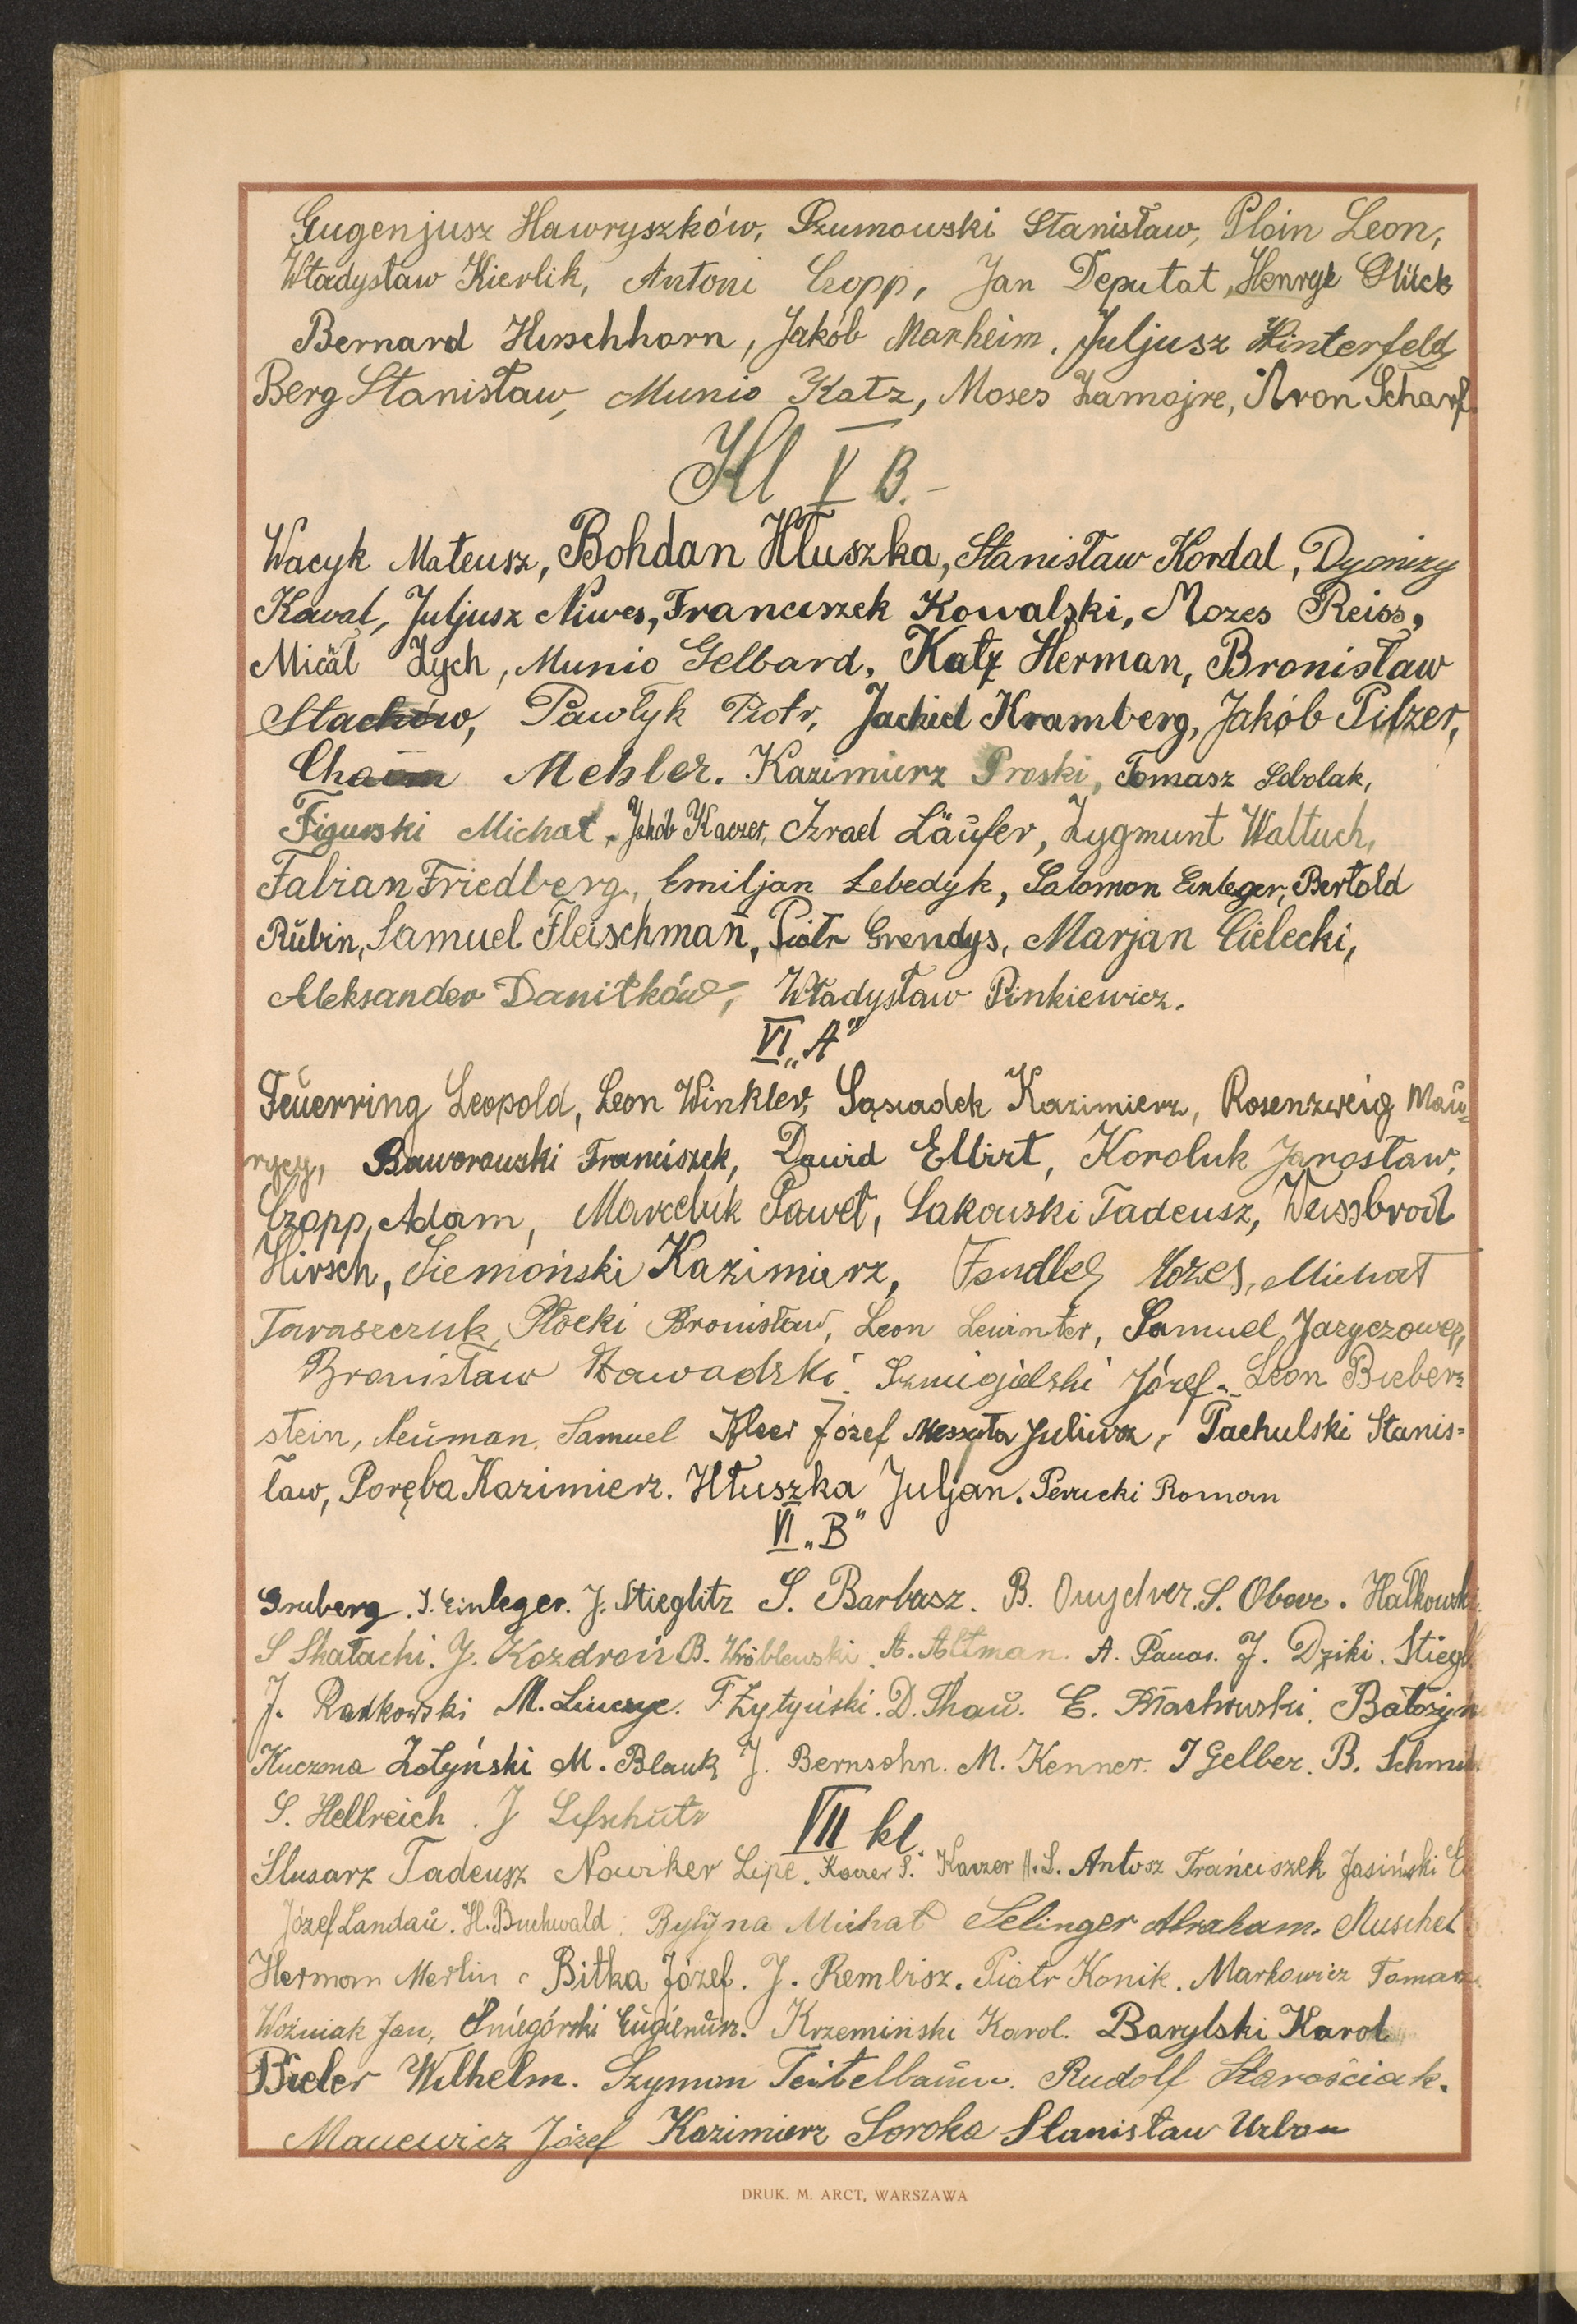 Eugenjusz Hawryszków, Szumowski Stanisław, Ploin Leon,
Władysław Kierlik, Antoni Czopp, Jan Deputat, Henryk Glück
Bernard Hirschhorn, Jakób Manheim, Juljusz Hinterfeld
Berg Stanisław, Munio Katz, Moses Zamojre, Aron Scharf
Kl V B.-
Wacyk Mateusz, Bohdan Hłuszka, Stanisław Kordal, Dyonizy
Kowal, Juljusz Niwes, Franciszek Kowalski, Mozes Reiss,
Micał Zych, Munio Gelbard, Katz Herman, Bronisław
Stachów, Pawłyk Piotr, Jachiel Kramberg, Jakób Pilzer,
Chaim Mehler. Kazimierz Proski, Tomasz
Figurski Michał, Jakób Kaczer, Izrael Läufer, Zygmunt Waltuch,
Fabian Friedberg, Emiljan Lebedyk, Salomon Einleger, Bertold
Rubin, Samuel Fleischman, Piotr Grendys, Marjan Cielecki,
Aleksander Daniłków, Władysław Pinkiewicz.
VI „A"
Feuerring Leopold, Leon Winkler, Sąsiadek Kazimierz, Rosenzweig Mau=
rycy, Baworowski Franciszek, Dawid Ellirt, Koroluk Jarosław,
Czopp Adam, Marceluk Paweł, Sakowski Tadeusz, Weissbrod
Hirsch, Siemoński Kazimierz, Mozes, Michał
Taraszczuk, Płocki Bronisław, Leon Lewinter, Samuel Jaryczower,
Bronisław Zawadzki, Szmigielski Józef. Leon Bieber=
stein, Neuman Samuel Kleer Józef Juliusz, Pachulski Stanis=
ław, Poręba Kazimierz. Hłuszka Juljan. Perucki Roman
VI „B"
Gruberg. I. Einleger. J. Stieglitz S. Barbasz. B. S. Obove. Hałkowski
S Skałacki. J. Kozdroń B. Wróblewski. A. Altman. A. Panas. J. Dziki. Stiegl
J. Radkowski M. F. Żytyński. D. Thau. E. Błachowski. Batożyn
Kuczma Żołyński M. Blauk J. Bernsohn. M. Kenner. I Gelber. B.
S. Hellreich. J Lifschutz
VII kl.
Ślusarz Tadeusz Nowiker Lipe. Kaczer S. Kaczer A. S. Antosz Franciszek Jasiński
Józef Landau. H. Buchwald. Bylyna Michał Selinger Abraham. Muschel
Herman Merlin. Bitka Józef. J. Rembisz. Piotr Konik. Markowicz Tomasz
Woźniak Jan, Śniegórski Eugienusz. Krzemiński Karol. Barylski Karol
Bieler Wilhelm. Szymon Teitelbaum. Rudolf Starościak.
Macewicz Józef Kazimierz Soroka Stanisław Urban
DRUK. M. ARCT, WARSZAWA